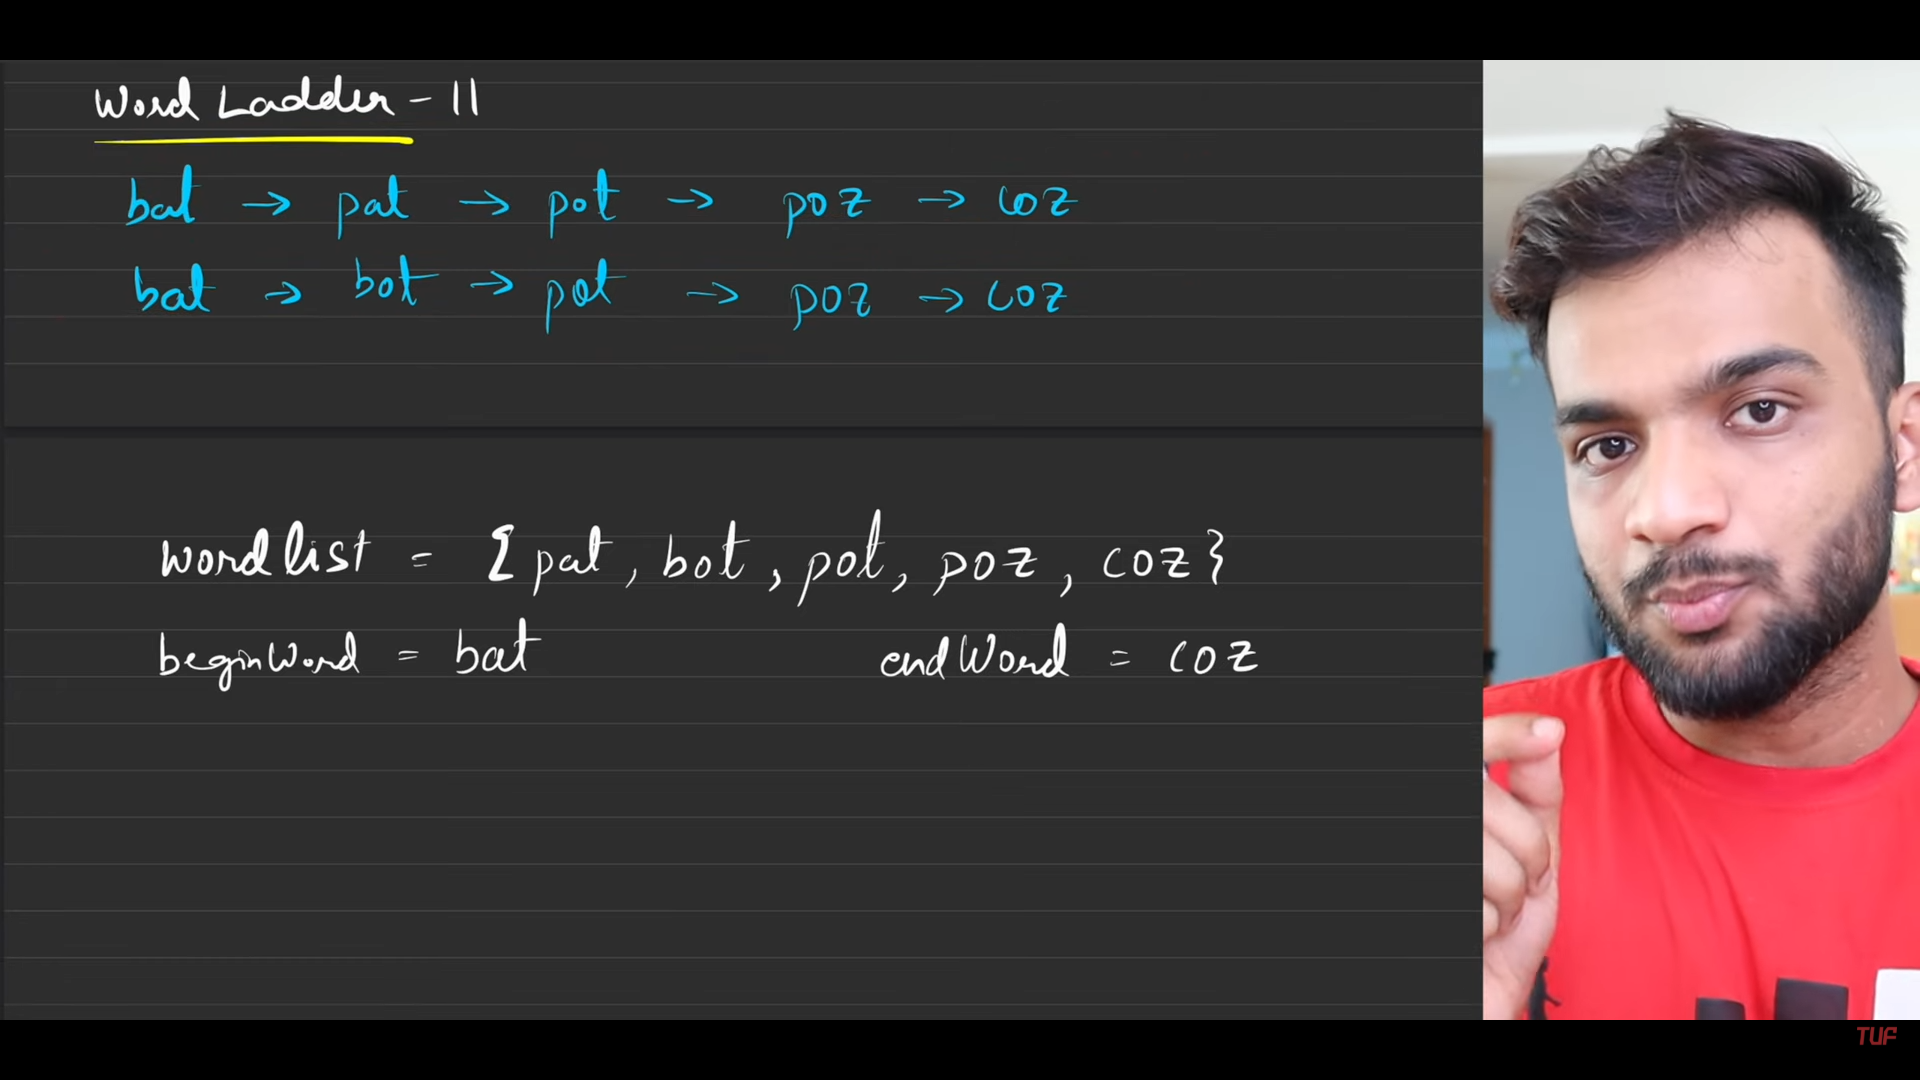 Word Ladder - II
bat → pat → pot → poz → coz
bat → bot → pot → poz → coz
wordlist = {pat, bot, pot, poz, coz}
beginWord = bat endWord = coz
TUF